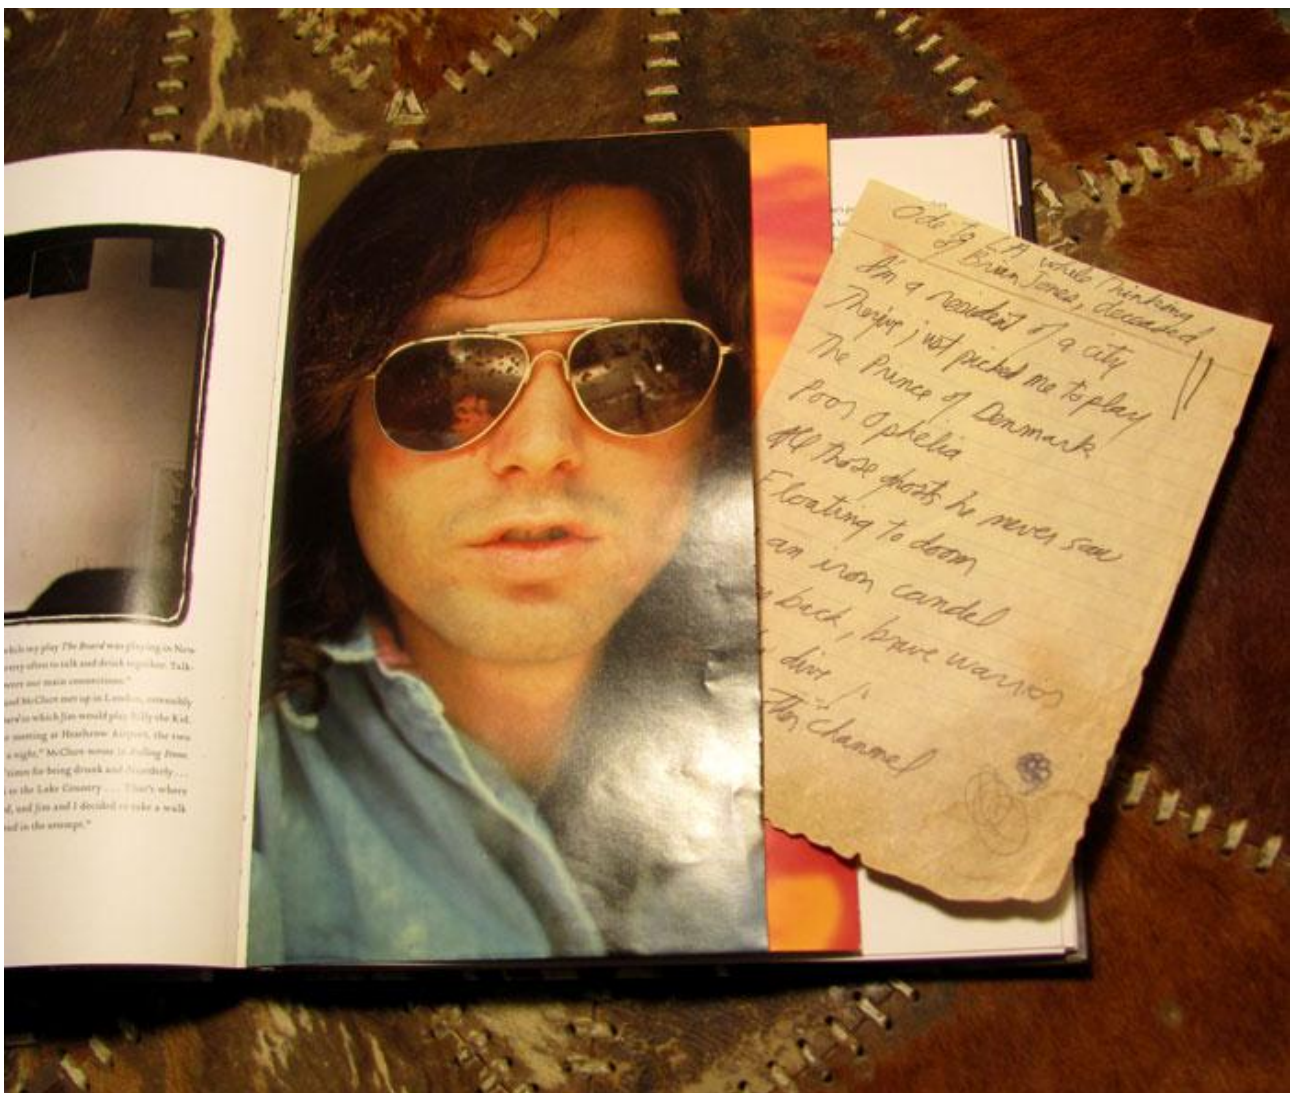 while my play The Beard was playing in New
very often to talk and drink together. Talk-
were our main connections."
and McClure met up in London, ostensibly
Beard in which Jim would play Billy the Kid.
meeting at Heathrow Airport, the two
a night," McClure wrote in Rolling Stone.
times for being drunk and disorderly . . .
to the Lake Country . . . That's where
d, and Jim and I decided to take a walk
red in the attempt."
Ode to LA while thinking
of Brian Jones, deceased
I'm a resident of a city
They've just picked me to play
The Prince of Denmark
Poor Ophelia
All those ghosts he never saw
Floating to doom
an iron candel
back, brave warrior
dive
channel